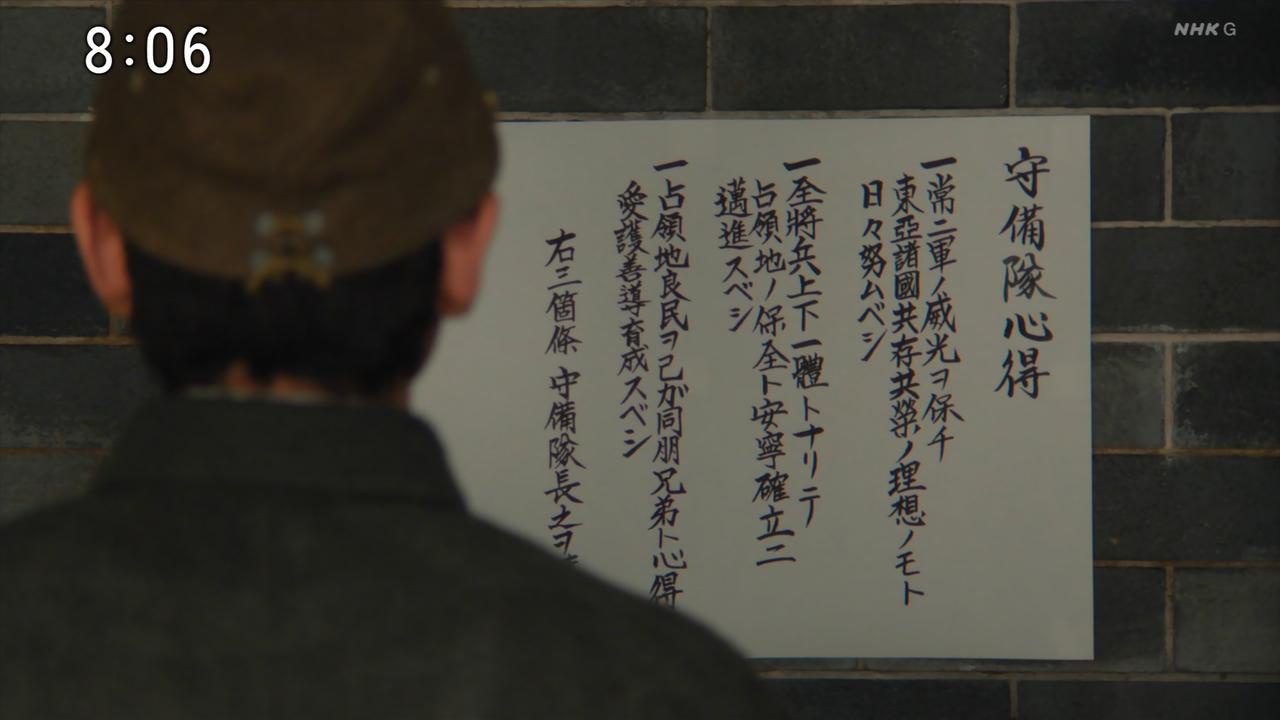 8:06
NHK G
守備隊心得
一常ニ軍ノ威光ヲ保チ
東亞諸國共存共榮ノ理想ノモト
日々努ムベシ
一全將兵上下一體トナリテ
占領地ノ保全ト安寧確立ニ
邁進スベシ
一占領地良民ヲ己が同朋兄弟ト心得
愛護善導育成スベシ
右三箇條守備隊長之ヲ